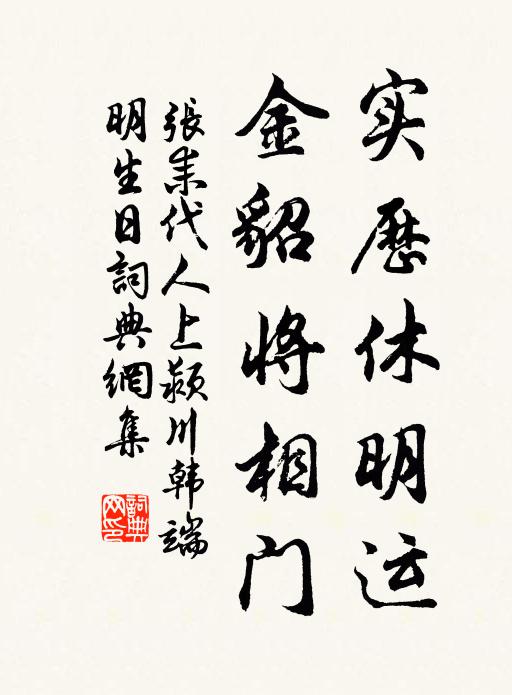 实歷休明运
金貂将相门
張耒代人上颍川韩端
明生日詞典網集
詞典网印